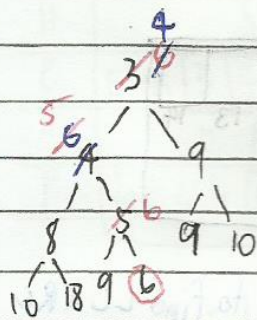 4
3 6
5
6 4 9
8 5 6 9 10
10 18 9 6